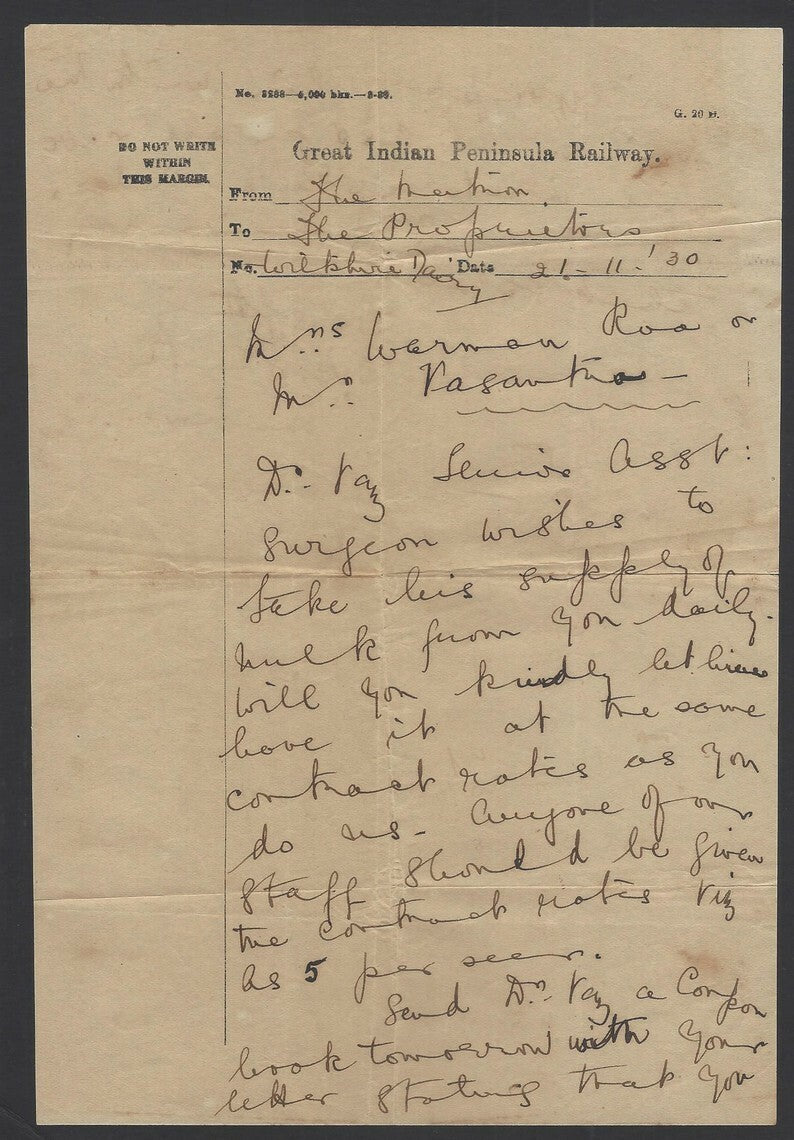 No. 3288—5,000 bks.—3-29.
G. 20 B.
DO NOT WRITE
WITHIN
THIS MARGIN.
Great Indian Peninsula Railway.
From The Matron.
To The Proprietors
No. Wiltshire Dairy Date 21-11-'30
Mrs Warman Roa or
Mr. Vasantha —
Dr. Vaz Senior Asst:
Surgeon wishes to
take his supply of
milk from you daily.
Will you kindly let him
have it at the same
contract rates as you
do us - Anyone of our
staff should be given
the contract rates viz
As 5 per seer.
Send Dr. Vaz a Coupon
book tomorrow with your
letter stating that you